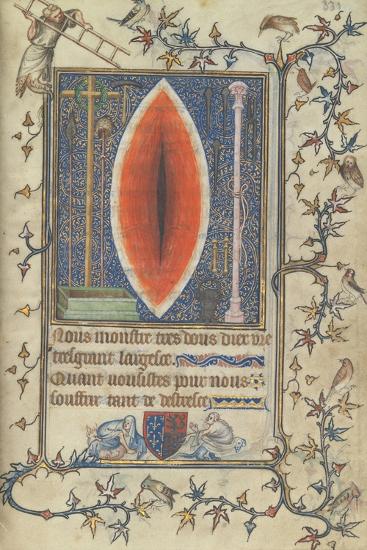 331
Nous monstre tres dous diex vre
tresgrant largesce
Quant vousistes pour nous
souffrir tant de destresce